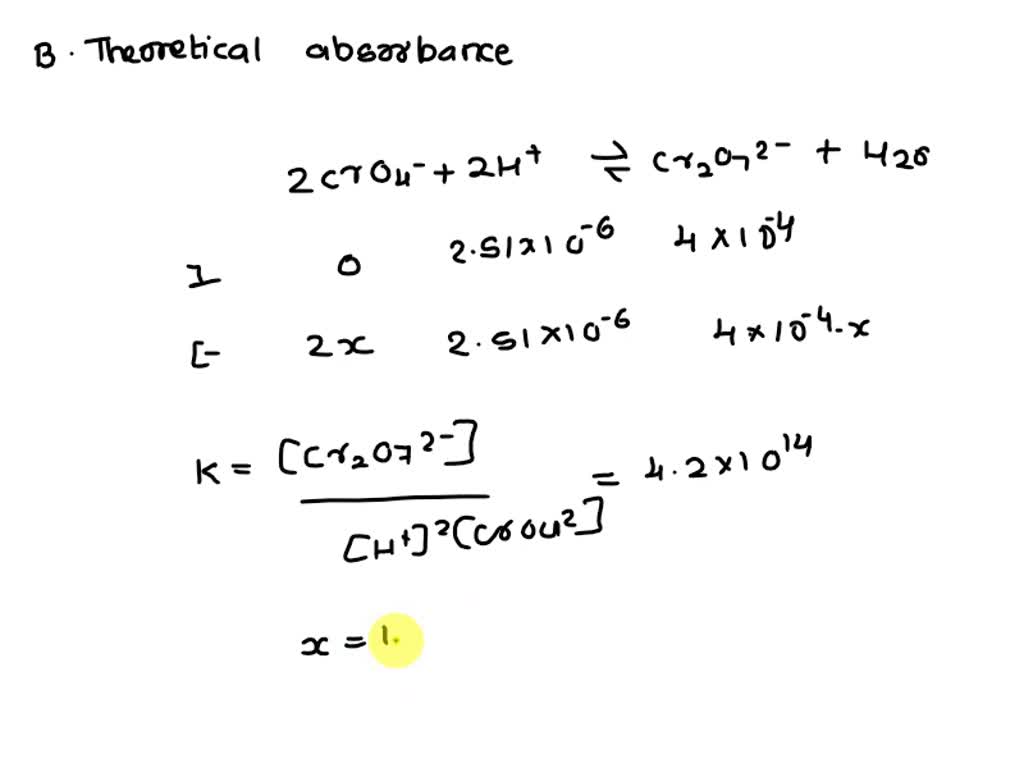 B. Theoretical absorbance
2CrO4⁻ + 2H⁺ ⇌ Cr2O7²⁻ + H2O
I 0 2.51x10⁻⁶ 4x10⁻⁴
E 2x 2.51x10⁻⁶ 4x10⁻⁴-x
K = [Cr2O7²⁻] / [H⁺]²[CrO4²] = 4.2x10¹⁴
x = 1.